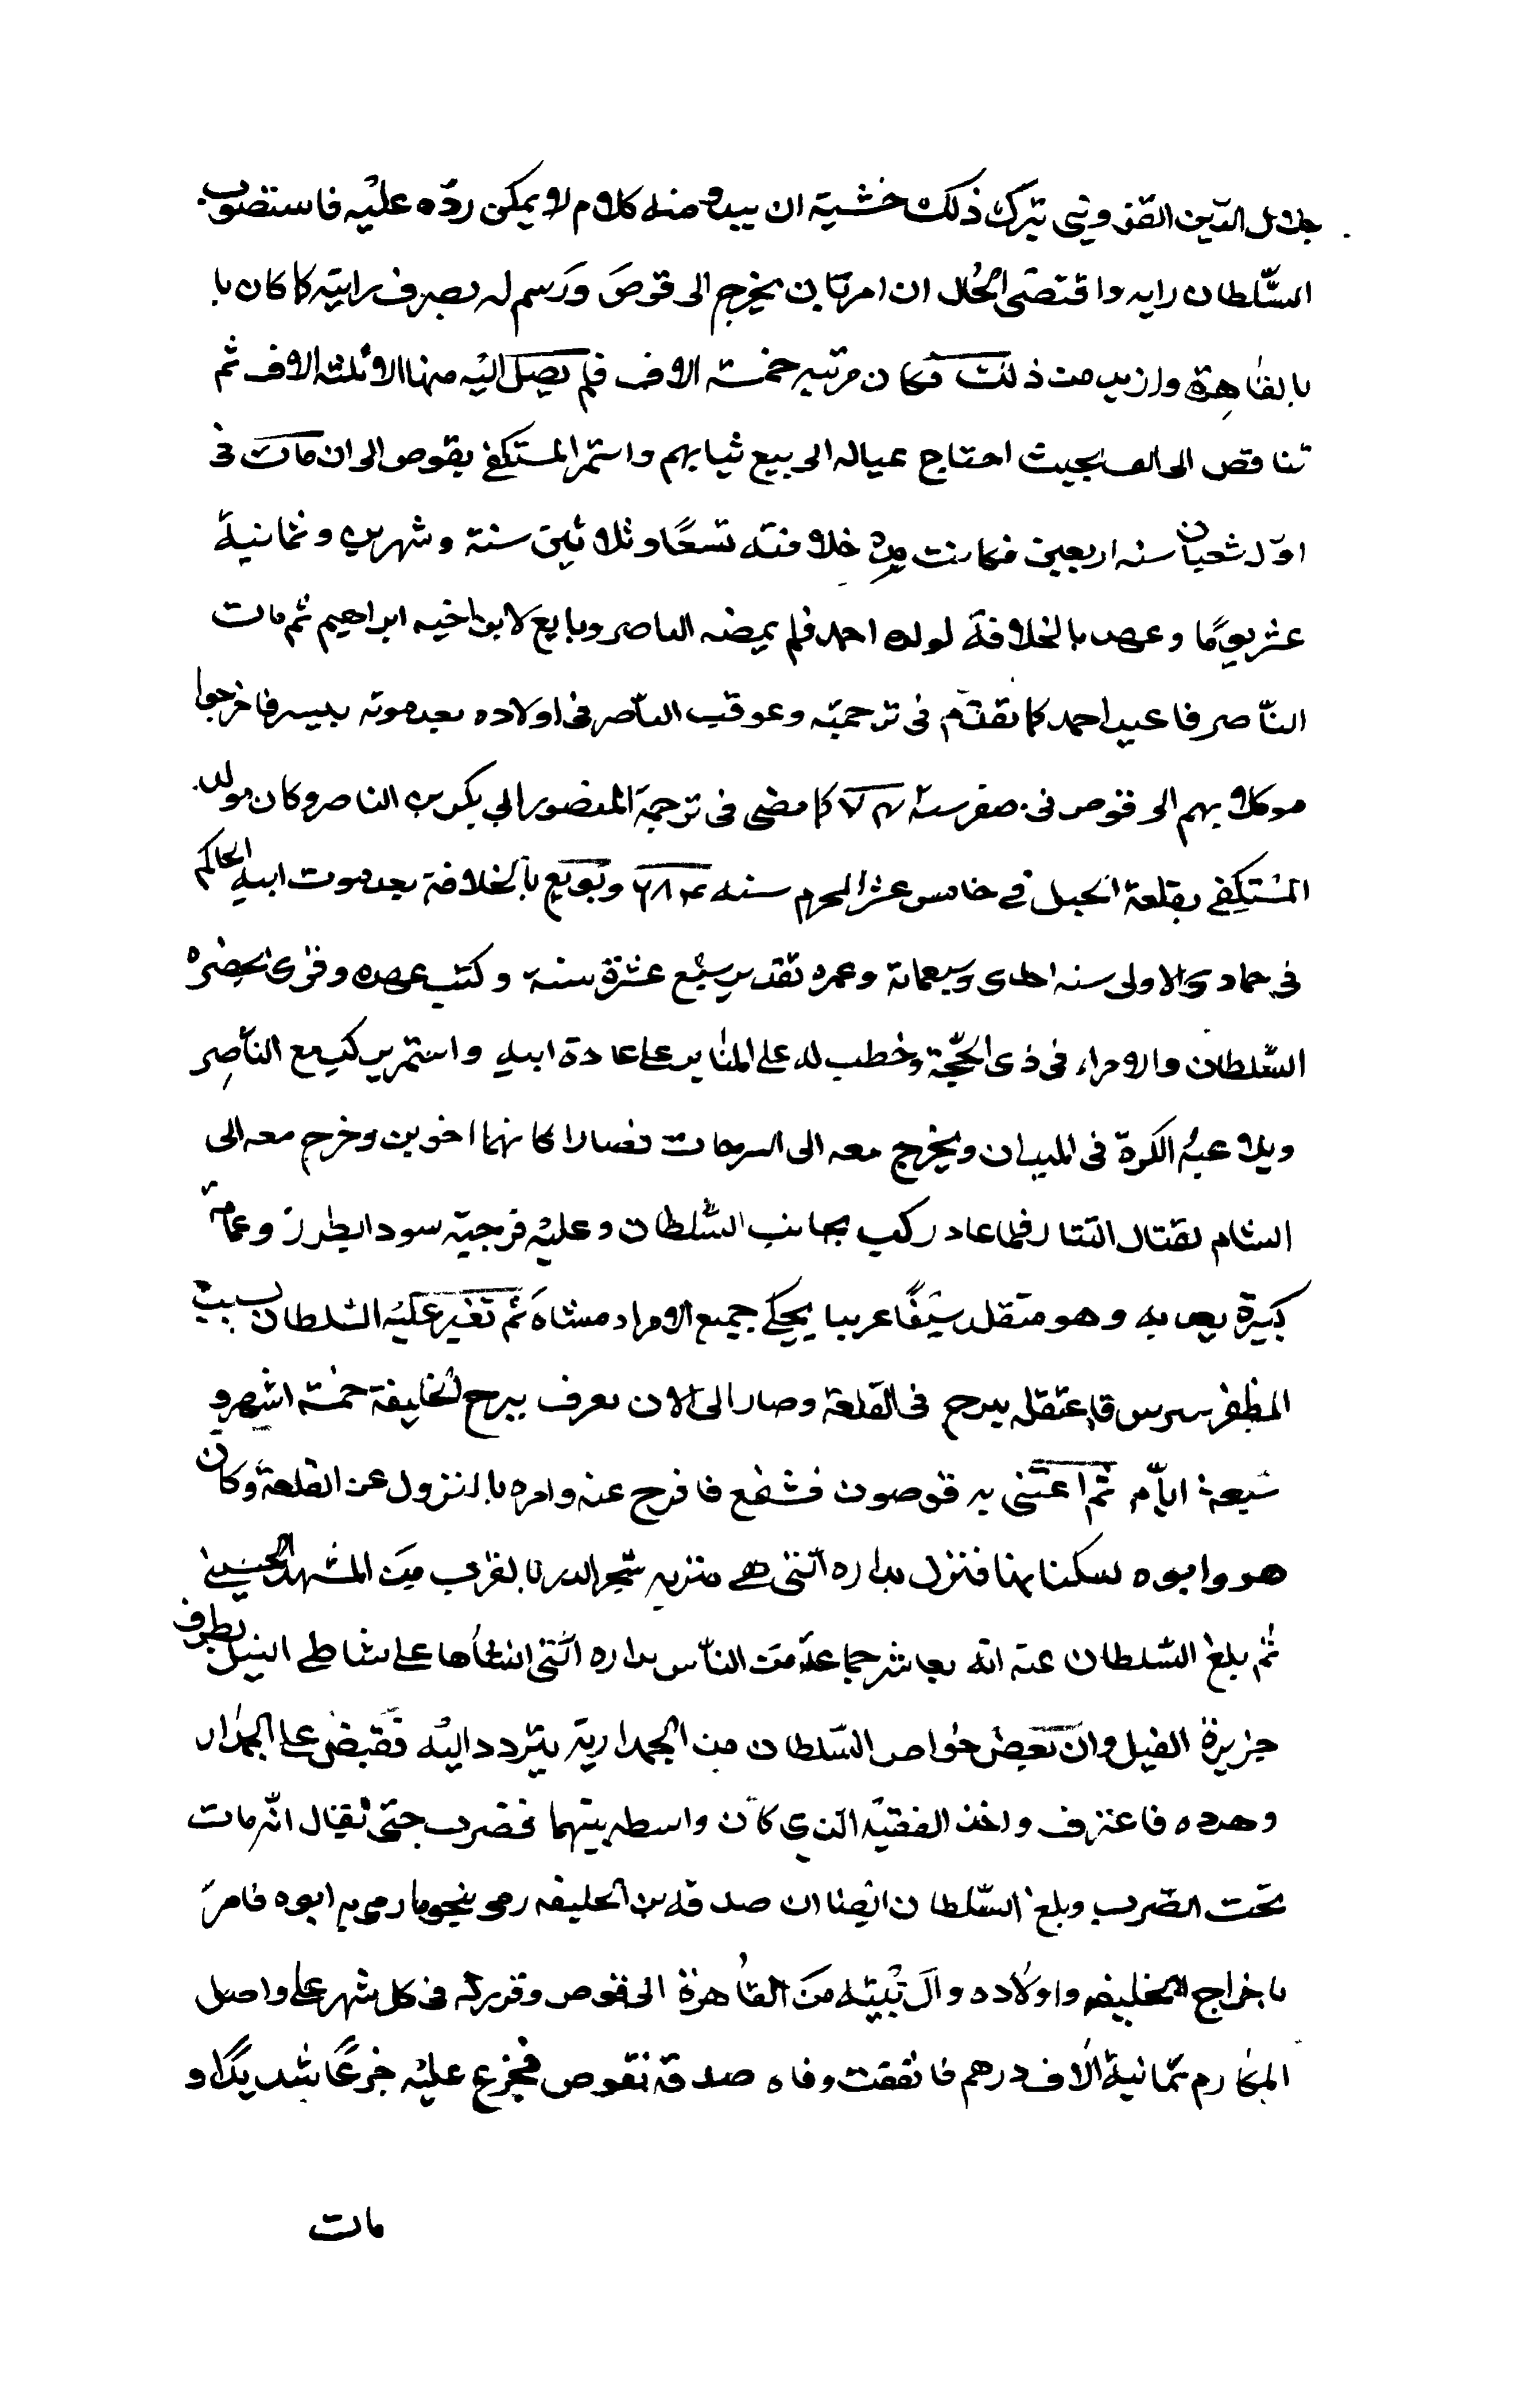 جلال الدّين القزويني بترك ذلك خشية ان يبدو منه كلام لا يمكن ردّه عليه فاستصوب
السّلطان رايه واقتضى الحال ان امر بان يخرج الى قوص ورسم له بصرف راتبه كما كان با
بالقاهرة وازيد من ذلك فكان مرتبه خمسة الاف فلم يصل اليه منها الا ثلثة الاف ثم
تناقص الى الف بحيث احتاج عياله الى بيع ثيابهم واستمر المستكفي بقوص الى ان مات في
اوّل شعبان سنه اربعين فكانت مدة خلافته تسعًا وثلاثين سنة وشهرين وثمانية
عشر يومًا وعهد بالخلافة لولده احمد فلم يمضه الناصر وبايع لابن اخيه ابراهيم ثم مات
النّاصر فاعيد احمد كما تقدّم في ترجمته وعوقب النّاصر في اولاده بعد موته بيسير فاخرجوا
موكلا بهم الى قوص في صفر سنة ٧٤٢ كما مضى في ترجمة المنصور ابي بكر بن الناصر وكان مولد
المستكفي بقلعة الجبل في خامس عشر المحرم سنه ٦٨٤ وبويع بالخلافة بعد موت ابيه الحاكم
في جمادى الاولى سنه احدى وسبعماية وعمره تقدير سبع عشرة سنة وكتب عهده وقرئ بحضرة
السّلطان والامراء في ذي الحجّة وخطب له على المنابر على عادة ابيه واستمر يركب مع النّاصر
ويلاعبه الكرة في الميدان ويخرج معه الى السرحات فصارا كانهما اخوين وخرج معه الى
الشام لقتال التتار فلما عاد ركب بجانب السّلطان وعليه فرجية سودا بطرز وعمامة
كبيرة بعدبه وهو متقلد سيفًا عربيا يحكي جميع الامراء مشاة ثم تغير عليه السلطان بسبب
المظفر بيبرس فاعتقله ببرج في القلعة وصار الى الان يعرف ببرج الخليفة خمسة اشهر و
سبعة ايّام ثم اعتنى به قوصون فشفع فافرج عنه وامره بالنزول عن القلعة وكان
هو وابوه يسكنا بها فنزل بداره التي هي بتربه شجر الدر بالقرب من المشهد الحسيني
ثم بلغ السّلطان عنه انّه يعاشر جماعة من النّاس بداره الّتي انشاها على شاطئ النيل بطرف
جزيرة الفيل وان بعض خواص السّلطان من الجمدارية يتردد اليه فقبض على الجمدار
وهدده فاعترف واخذ الفقيه الذي كان واسطه بينهما فضرب حتى يقال انّه مات
تحت الضرب وبلغ السّلطان ايضا ان صدقه بن الخليفه رمي بنحو ما رمي به ابوه فامر
باخراج الخليفه واولاده وال بيته من القاهرة الى قوص وقرر له في كل شهر على واصل
المكارم ثمانية الاف درهم فاتفقت وفاه صدقة بقوص فجزع عليه جزعًا شديدًا و
مات